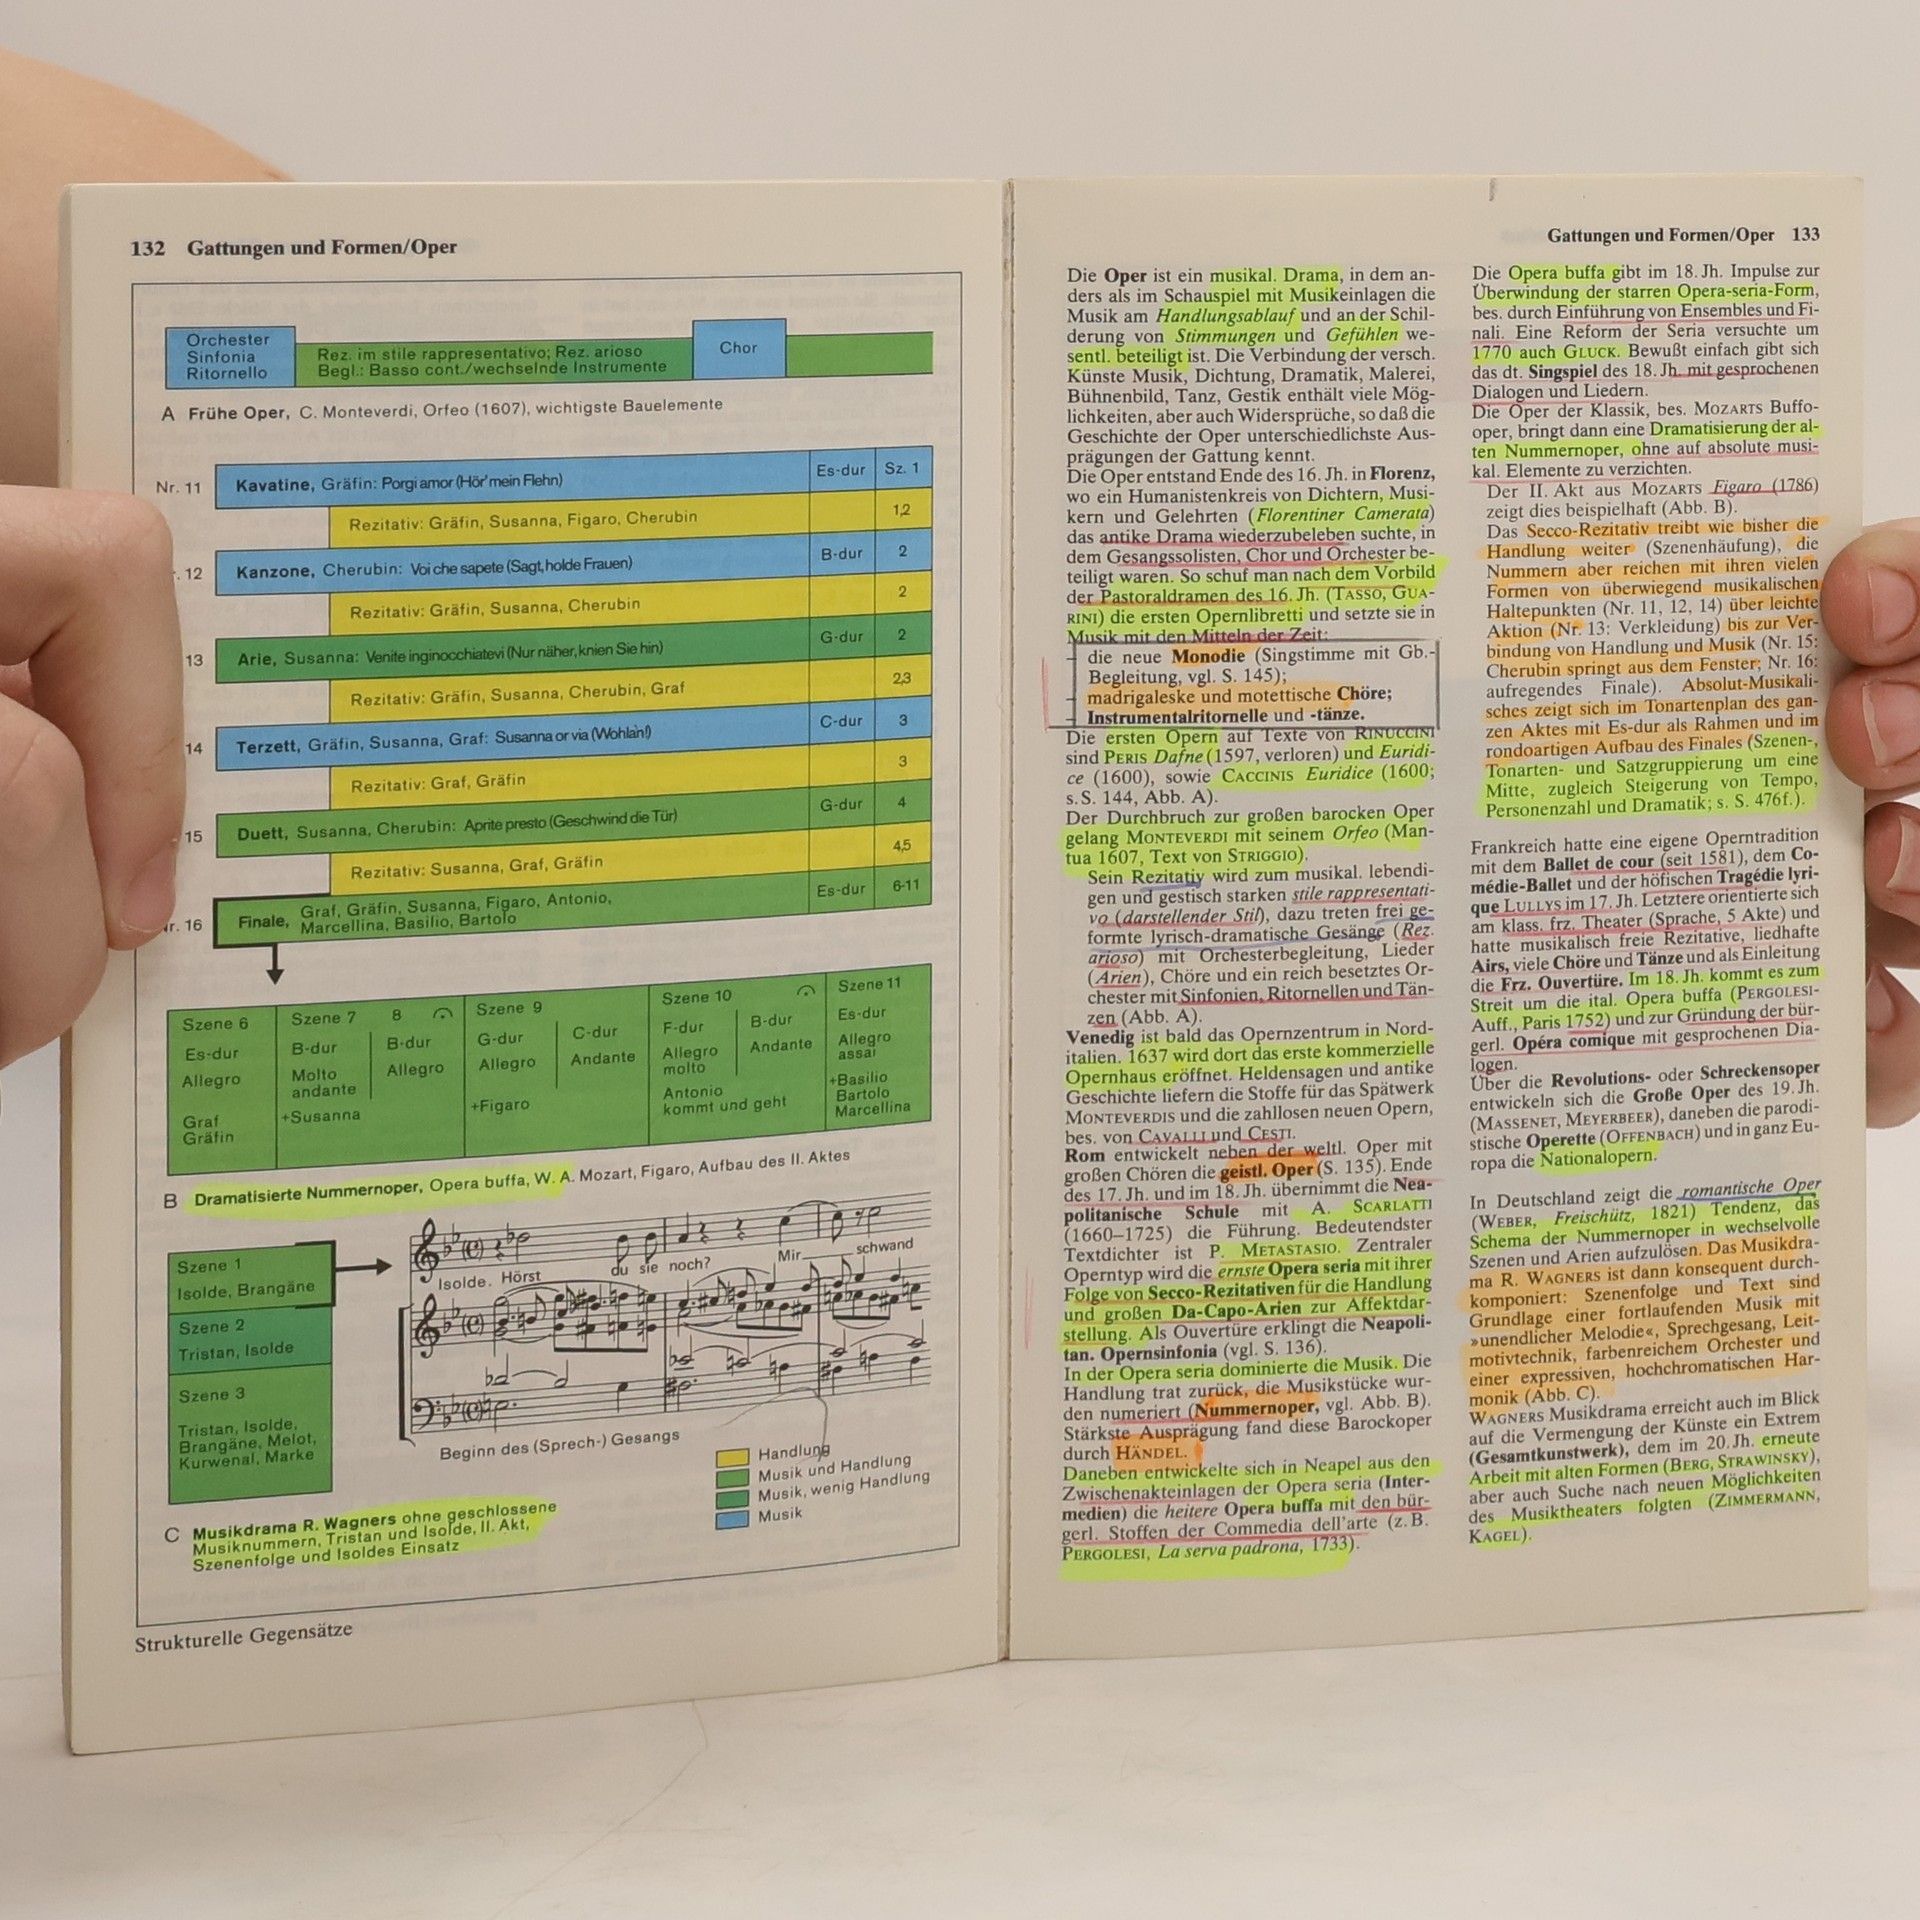 132 Gattungen und Formen/Oper
Orchester
Sinfonia
Ritornello
Rez. im stile rappresentativo; Rez. arioso
Begl.: Basso cont./wechselnde Instrumente
Chor
A Frühe Oper, C. Monteverdi, Orfeo (1607), wichtigste Bauelemente
Nr. 11 Kavatine, Gräfin: Porgi amor (Hör' mein Flehn) Es-dur Sz. 1
Rezitativ: Gräfin, Susanna, Figaro, Cherubin 1,2
12 Kanzone, Cherubin: Voi che sapete (Sagt, holde Frauen) B-dur 2
Rezitativ: Gräfin, Susanna, Cherubin 2
13 Arie, Susanna: Venite inginocchiatevi (Nur näher, knien Sie hin) G-dur 2
Rezitativ: Gräfin, Susanna, Cherubin, Graf 2,3
14 Terzett, Gräfin, Susanna, Graf: Susanna or via (Wohlan!) C-dur 3
Rezitativ: Graf, Gräfin 3
15 Duett, Susanna, Cherubin: Aprite presto (Geschwind die Tür) G-dur 4
Rezitativ: Susanna, Graf, Gräfin 4,5
r. 16 Finale, Graf, Gräfin, Susanna, Figaro, Antonio,
Marcellina, Basilio, Bartolo Es-dur 6-11
Szene 6
Es-dur
Allegro
Graf
Gräfin
Szene 7 8
B-dur B-dur
Molto
andante Allegro
+Susanna
Szene 9
G-dur C-dur
Allegro Andante
+Figaro
Szene 10
F-dur B-dur
Allegro
molto Andante
Antonio
kommt und geht
Szene 11
Es-dur
Allegro
assai
+Basilio
Bartolo
Marcellina
B Dramatisierte Nummernoper, Opera buffa, W. A. Mozart, Figaro, Aufbau des II. Aktes
Szene 1
Isolde, Brangäne
Szene 2
Tristan, Isolde
Szene 3
Tristan, Isolde,
Brangäne, Melot,
Kurwenal, Marke
Isolde. Hörst du sie noch? Mir schwand
Beginn des (Sprech-) Gesangs
Handlung
Musik und Handlung
Musik, wenig Handlung
Musik
C Musikdrama R. Wagners ohne geschlossene
Musiknummern, Tristan und Isolde, II. Akt,
Szenenfolge und Isoldes Einsatz
Strukturelle Gegensätze
Gattungen und Formen/Oper 133
Die Oper ist ein musikal. Drama, in dem an-
ders als im Schauspiel mit Musikeinlagen die
Musik am Handlungsablauf und an der Schil-
derung von Stimmungen und Gefühlen we-
sentl. beteiligt ist. Die Verbindung der versch.
Künste Musik, Dichtung, Dramatik, Malerei,
Bühnenbild, Tanz, Gestik enthält viele Mög-
lichkeiten, aber auch Widersprüche, so daß die
Geschichte der Oper unterschiedlichste Aus-
prägungen der Gattung kennt.
Die Oper entstand Ende des 16. Jh. in Florenz,
wo ein Humanistenkreis von Dichtern, Musi-
kern und Gelehrten (Florentiner Camerata)
das antike Drama wiederzubeleben suchte, in
dem Gesangssolisten, Chor und Orchester be-
teiligt waren. So schuf man nach dem Vorbild
der Pastoraldramen des 16. Jh. (TASSO, GUA-
RINI) die ersten Opernlibretti und setzte sie in
Musik mit den Mitteln der Zeit:
die neue Monodie (Singstimme mit Gb.-
Begleitung, vgl. S. 145);
madrigaleske und motettische Chöre;
Instrumentalritornelle und -tänze.
Die ersten Opern auf Texte von RINUCCINI
sind PERIS Dafne (1597, verloren) und Euridi-
ce (1600), sowie CACCINIS Euridice (1600;
s. S. 144, Abb. A).
Der Durchbruch zur großen barocken Oper
gelang MONTEVERDI mit seinem Orfeo (Man-
tua 1607, Text von STRIGGIO).
Sein Rezitativ wird zum musikal. lebendi-
gen und gestisch starken stile rappresentati-
vo (darstellender Stil), dazu treten frei ge-
formte lyrisch-dramatische Gesänge (Rez.
arioso) mit Orchesterbegleitung, Lieder
(Arien), Chöre und ein reich besetztes Or-
chester mit Sinfonien, Ritornellen und Tän-
zen (Abb. A).
Venedig ist bald das Opernzentrum in Nord-
italien. 1637 wird dort das erste kommerzielle
Opernhaus eröffnet. Heldensagen und antike
Geschichte liefern die Stoffe für das Spätwerk
MONTEVERDIS und die zahllosen neuen Opern,
bes. von CAVALLI und CESTI.
Rom entwickelt neben der weltl. Oper mit
großen Chören die geistl. Oper (S. 135). Ende
des 17. Jh. und im 18. Jh. übernimmt die Nea-
politanische Schule mit A. SCARLATTI
(1660–1725) die Führung. Bedeutendster
Textdichter ist P. METASTASIO. Zentraler
Operntyp wird die ernste Opera seria mit ihrer
Folge von Secco-Rezitativen für die Handlung
und großen Da-Capo-Arien zur Affektdar-
stellung. Als Ouvertüre erklingt die Neapoli-
tan. Opernsinfonia (vgl. S. 136).
In der Opera seria dominierte die Musik. Die
Handlung trat zurück, die Musikstücke wur-
den numeriert (Nummernoper, vgl. Abb. B).
Stärkste Ausprägung fand diese Barockoper
durch HÄNDEL.
Daneben entwickelte sich in Neapel aus den
Zwischenakteinlagen der Opera seria (Inter-
medien) die heitere Opera buffa mit den bür-
gerl. Stoffen der Commedia dell'arte (z. B.
PERGOLESI, La serva padrona, 1733).
Die Opera buffa gibt im 18. Jh. Impulse zur
Überwindung der starren Opera-seria-Form,
bes. durch Einführung von Ensembles und Fi-
nali. Eine Reform der Seria versuchte um
1770 auch GLUCK. Bewußt einfach gibt sich
das dt. Singspiel des 18. Jh. mit gesprochenen
Dialogen und Liedern.
Die Oper der Klassik, bes. MOZARTS Buffo-
oper, bringt dann eine Dramatisierung der al-
ten Nummernoper, ohne auf absolute musi-
kal. Elemente zu verzichten.
Der II. Akt aus MOZARTS Figaro (1786)
zeigt dies beispielhaft (Abb. B).
Das Secco-Rezitativ treibt wie bisher die
Handlung weiter (Szenenhäufung), die
Nummern aber reichen mit ihren vielen
Formen von überwiegend musikalischen
Haltepunkten (Nr. 11, 12, 14) über leichte
Aktion (Nr. 13: Verkleidung) bis zur Ver-
bindung von Handlung und Musik (Nr. 15:
Cherubin springt aus dem Fenster; Nr. 16:
aufregendes Finale). Absolut-Musikali-
sches zeigt sich im Tonartenplan des gan-
zen Aktes mit Es-dur als Rahmen und im
rondoartigen Aufbau des Finales (Szenen-,
Tonarten- und Satzgruppierung um eine
Mitte, zugleich Steigerung von Tempo,
Personenzahl und Dramatik; s. S. 476f.).
Frankreich hatte eine eigene Operntradition
mit dem Ballet de cour (seit 1581), dem Co-
médie-Ballet und der höfischen Tragédie lyri-
que LULLYS im 17. Jh. Letztere orientierte sich
am klass. frz. Theater (Sprache, 5 Akte) und
hatte musikalisch freie Rezitative, liedhafte
Airs, viele Chöre und Tänze und als Einleitung
die Frz. Ouvertüre. Im 18. Jh. kommt es zum
Streit um die ital. Opera buffa (PERGOLESI-
Auff., Paris 1752) und zur Gründung der bür-
gerl. Opéra comique mit gesprochenen Dia-
logen.
Über die Revolutions- oder Schreckensoper
entwickeln sich die Große Oper des 19. Jh.
(MASSENET, MEYERBEER), daneben die parodi-
stische Operette (OFFENBACH) und in ganz Eu-
ropa die Nationalopern.
In Deutschland zeigt die romantische Oper
(WEBER, Freischütz, 1821) Tendenz, das
Schema der Nummernoper in wechselvolle
Szenen und Arien aufzulösen. Das Musikdra-
ma R. WAGNERS ist dann konsequent durch-
komponiert: Szenenfolge und Text sind
Grundlage einer fortlaufenden Musik mit
»unendlicher Melodie«, Sprechgesang, Leit-
motivtechnik, farbenreichem Orchester und
einer expressiven, hochchromatischen Har-
monik (Abb. C).
WAGNERS Musikdrama erreicht auch im Blick
auf die Vermengung der Künste ein Extrem
(Gesamtkunstwerk), dem im 20. Jh. erneute
Arbeit mit alten Formen (BERG, STRAWINSKY),
aber auch Suche nach neuen Möglichkeiten
des Musiktheaters folgten (ZIMMERMANN,
KAGEL).